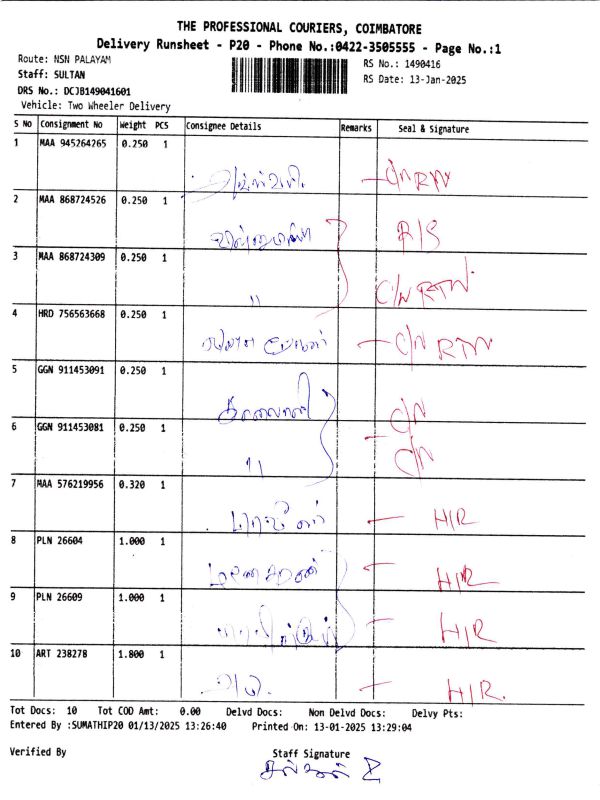 THE PROFESSIONAL COURIERS, COIMBATORE
Delivery Runsheet - P20 - Phone No.:0422-3505555 - Page No.:1
Route: NSN PALAYAM
RS No.: 1490416
Staff: SULTAN
RS Date: 13-Jan-2025
DRS No.: DCJB149041601
Vehicle: Two Wheeler Delivery
S No Consignment No Weight PCS Consignee Details Remarks Seal & Signature
1 MAA 945264265 0.250 1
C/N RTN
2 MAA 868724526 0.250 1
R/S
3 MAA 868724309 0.250 1
" C/N RTN
4 HRD 756563668 0.250 1
C/N RTN
5 GGN 911453091 0.250 1
கலைவாணி C/N
6 GGN 911453081 0.250 1
" C/N
7 MAA 576219956 0.320 1
H/R
8 PLN 26604 1.000 1
H/R
9 PLN 26609 1.000 1
H/R
10 ART 238278 1.800 1
H/R.
Tot Docs: 10 Tot COD Amt: 0.00 Delvd Docs: Non Delvd Docs: Delvy Pts:
Entered By :SUMATHIP20 01/13/2025 13:26:40 Printed On: 13-01-2025 13:29:04
Verified By Staff Signature